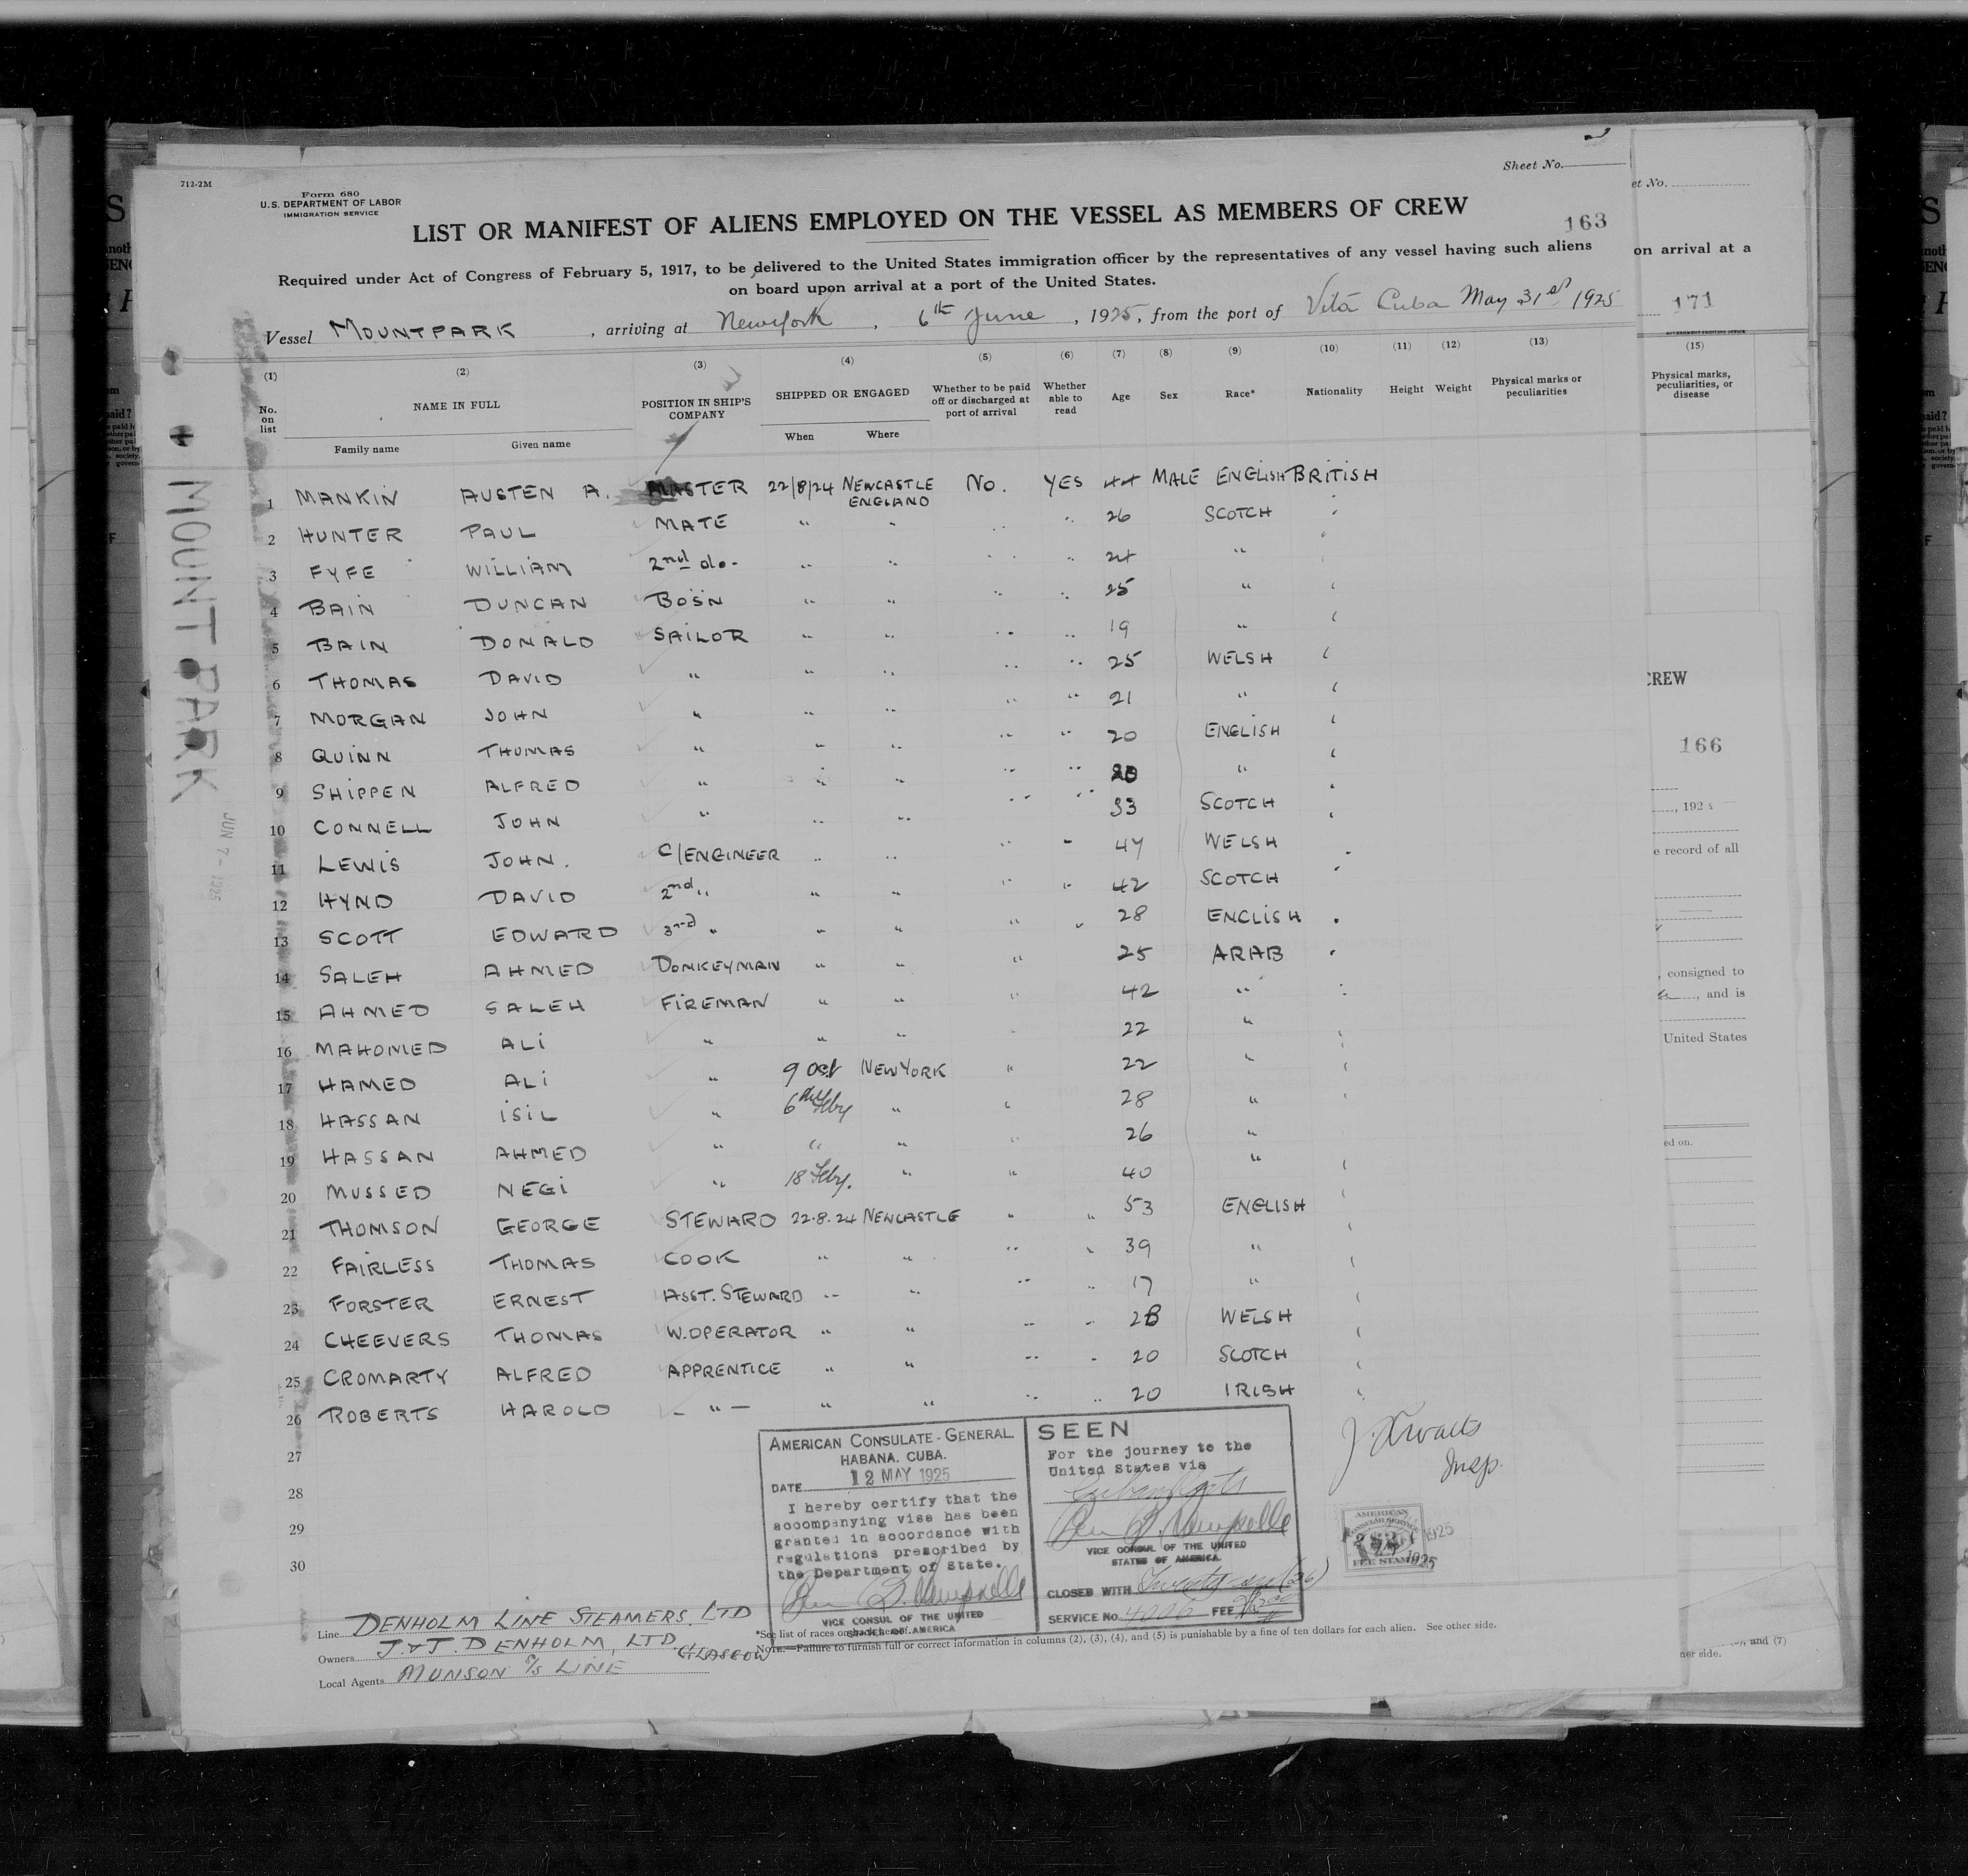 712-2M
Form 680
U.S. DEPARTMENT OF LABOR
IMMIGRATION SERVICE
Sheet No.
LIST OR MANIFEST OF ALIENS EMPLOYED ON THE VESSEL AS MEMBERS OF CREW
163
Required under Act of Congress of February 5, 1917, to be delivered to the United States immigration officer by the representatives of any vessel having such aliens
on board upon arrival at a port of the United States.
Vessel MOUNTPARK, arriving at New York, 6th June, 1925, from the port of Vita Cuba May 31st 1925
(1) (2) (3) (4) (5) (6) (7) (8) (9) (10) (11) (12) (13)
No. on list NAME IN FULL POSITION IN SHIP'S COMPANY SHIPPED OR ENGAGED Whether to be paid off or discharged at port of arrival Whether able to read Age Sex Race* Nationality Height Weight Physical marks or peculiarities
Family name Given name When Where
1 MANKIN AUSTEN A. MASTER 22/8/24 NEWCASTLE ENGLAND No. YES 44 MALE ENGLISH BRITISH
2 HUNTER PAUL MATE " " " " 26 SCOTCH "
3 FYFE WILLIAM 2nd do. " " " " 24 " "
4 BAIN DUNCAN BOSN " " " " 25 " "
5 BAIN DONALD SAILOR " " " " 19 " "
6 THOMAS DAVID " " " " " 25 WELSH "
7 MORGAN JOHN " " " " " 21 " "
8 QUINN THOMAS " " " " " 20 ENGLISH "
9 SHIPPEN ALFRED " " " " " 20 " "
10 CONNELL JOHN " " " " " 33 SCOTCH "
11 LEWIS JOHN. C/ENGINEER " " " " 47 WELSH "
12 HYND DAVID 2nd " " " " " 42 SCOTCH "
13 SCOTT EDWARD 3rd " " " " " 28 ENGLISH "
14 SALEH AHMED DONKEYMAN " " " 25 ARAB "
15 AHMED SALEH FIREMAN " " " 42 " "
16 MAHOMED ALI " " " " 22 " "
17 HAMED ALI " 9 Oct NEW YORK " 22 " "
18 HASSAN ISIL " 6th Feby " " 28 " "
19 HASSAN AHMED " " " " 26 "
20 MUSSED NEGI " 18 Feby. " " 40 " "
21 THOMSON GEORGE STEWARD 22.8.24 NEWCASTLE " " 53 ENGLISH "
22 FAIRLESS THOMAS COOK " " " " 39 " "
23 FORSTER ERNEST ASST. STEWARD " " " " 17 " "
24 CHEEVERS THOMAS W.OPERATOR " " " " 28 WELSH "
25 CROMARTY ALFRED APPRENTICE " " " " 20 SCOTCH "
26 ROBERTS HAROLD – " – " " " " 20 IRISH "
27
28
29
30
MOUNT PARK
JUN 7 - 1925
AMERICAN CONSULATE-GENERAL
HABANA. CUBA.
DATE 12 MAY 1925
I hereby certify that the
accompanying visa has been
granted in accordance with
regulations prescribed by
the Department of State.
VICE CONSUL OF THE UNITED
STATES OF AMERICA
SEEN
For the journey to the
United States via
VICE CONSUL OF THE UNITED
STATES OF AMERICA
CLOSED WITH Twenty six (26)
SERVICE No. 4006 FEE
Insp.
AMERICAN
CONSULAR SERVICE
FEE STAMP
1925
1925
Line DENHOLM LINE STEAMERS. LTD
Owners J. & J. DENHOLM, LTD. GLASGOW
Local Agents MUNSON S/S LINE
*See list of races on back hereof.
NOTE.—Failure to furnish full or correct information in columns (2), (3), (4), and (5) is punishable by a fine of ten dollars for each alien. See other side.
et No.
on arrival at a
171
(15)
Physical marks, peculiarities, or disease
CREW
166
, 192
e record of all
, consigned to
, and is
United States
ed on.
, and (7)
ner side.